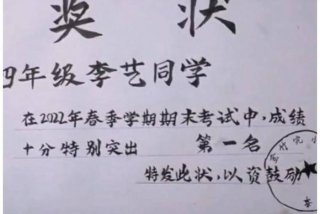 奖状
四年级李艺同学
在2022年春季学期期末考试中,成绩
十分特别突出 第一名
特发此状,以资鼓励